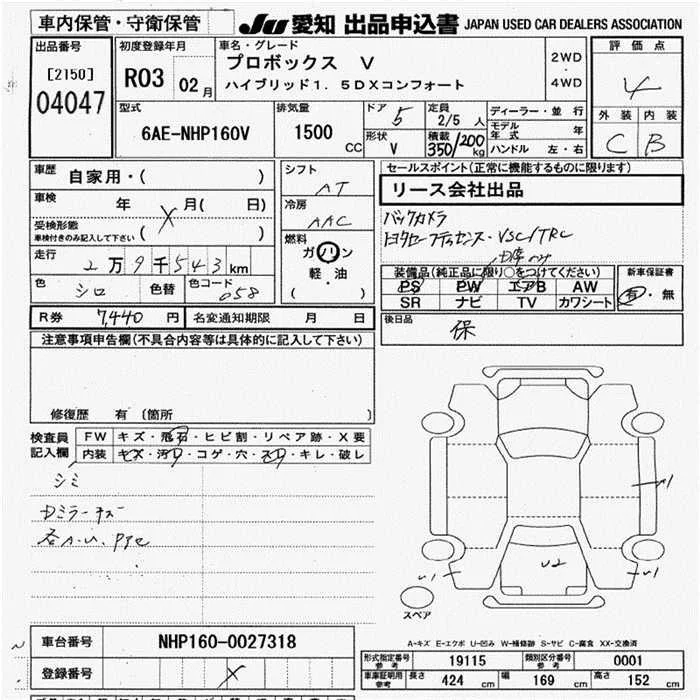 車内保管・守衛保管 JU 愛知 出品申込書 JAPAN USED CAR DEALERS ASSOCIATION
出品番号
[2150]
04047
初度登録年月
R03 02月
車名・グレード
プロボックス V
ハイブリッド1.5DXコンフォート
2WD
・
4WD
評価点
4
外装 内装
C B
型式
6AE-NHP160V
排気量
1500 CC
ドア 5
形状 V
定員 2/5 人
積載 350/200 kg
ディーラー・並行
モデル年式 年
ハンドル 左・右
車歴 自家用・( )
車検 年 X 月( 日)
受検形態
車検付きのみ記入して下さい ( )
走行
2万9千543km
色 シロ 色替 色コード 058
シフト
AT
冷房
AAC
燃料
ガソリン
軽・油
( )
セールスポイント(正常に機能するものに限ります)
リース会社出品
バックカメラ
トヨタセーフティセンス・VSC/TRC
装備品(純正品に限り○をつけてください)
PS PW エアB AW
SR ナビ TV カワシート
新車保証書
有・無
R券 7,440 円 名変通知期限 月 日
後日品
保
注意事項申告欄(不具合内容等は具体的に記入して下さい)
修復歴 有 〔箇所 〕
検査員記入欄
FW キズ・飛石・ヒビ割・リペア跡・X要
内装 キズ・汚れ・コゲ・穴・スレ・キレ・破レ
シミ
Dミラーキズ
U2
U1
U1
スペア
A-キズ E-エクボ U-凹み W-補修跡 S-サビ C-腐食 XX-交換済
車台番号 NHP160-0027318
登録番号 X
形式指定番号 参考 19115 類別区分番号 参考 0001
車庫証明用 参考 長さ 424 cm 幅 169 cm 高さ 152 cm